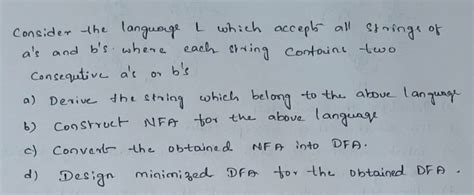 Consider the language L which accepts all strings of
a's and b's where each string contains two
Consequtive a's or b's
a) Derive the string which belong to the above language
b) Construct NFA for the above language
c) Convert the obtained NFA into DFA.
d) Design minimized DFA for the obtained DFA.